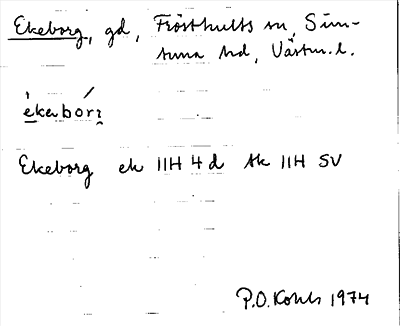 Ekeborg, gd, Frösthults sn, Sim-
tuna hd, Västm. l.
ekebörg
Ekeborg ek 11H 4d tk 11H SV
P.O. Kohls 1974